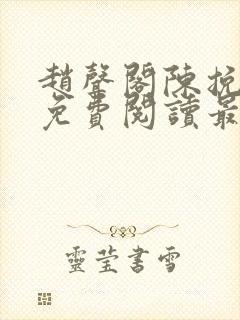 趙聲閣陳挽
免費閱讀最
靈莹書雪